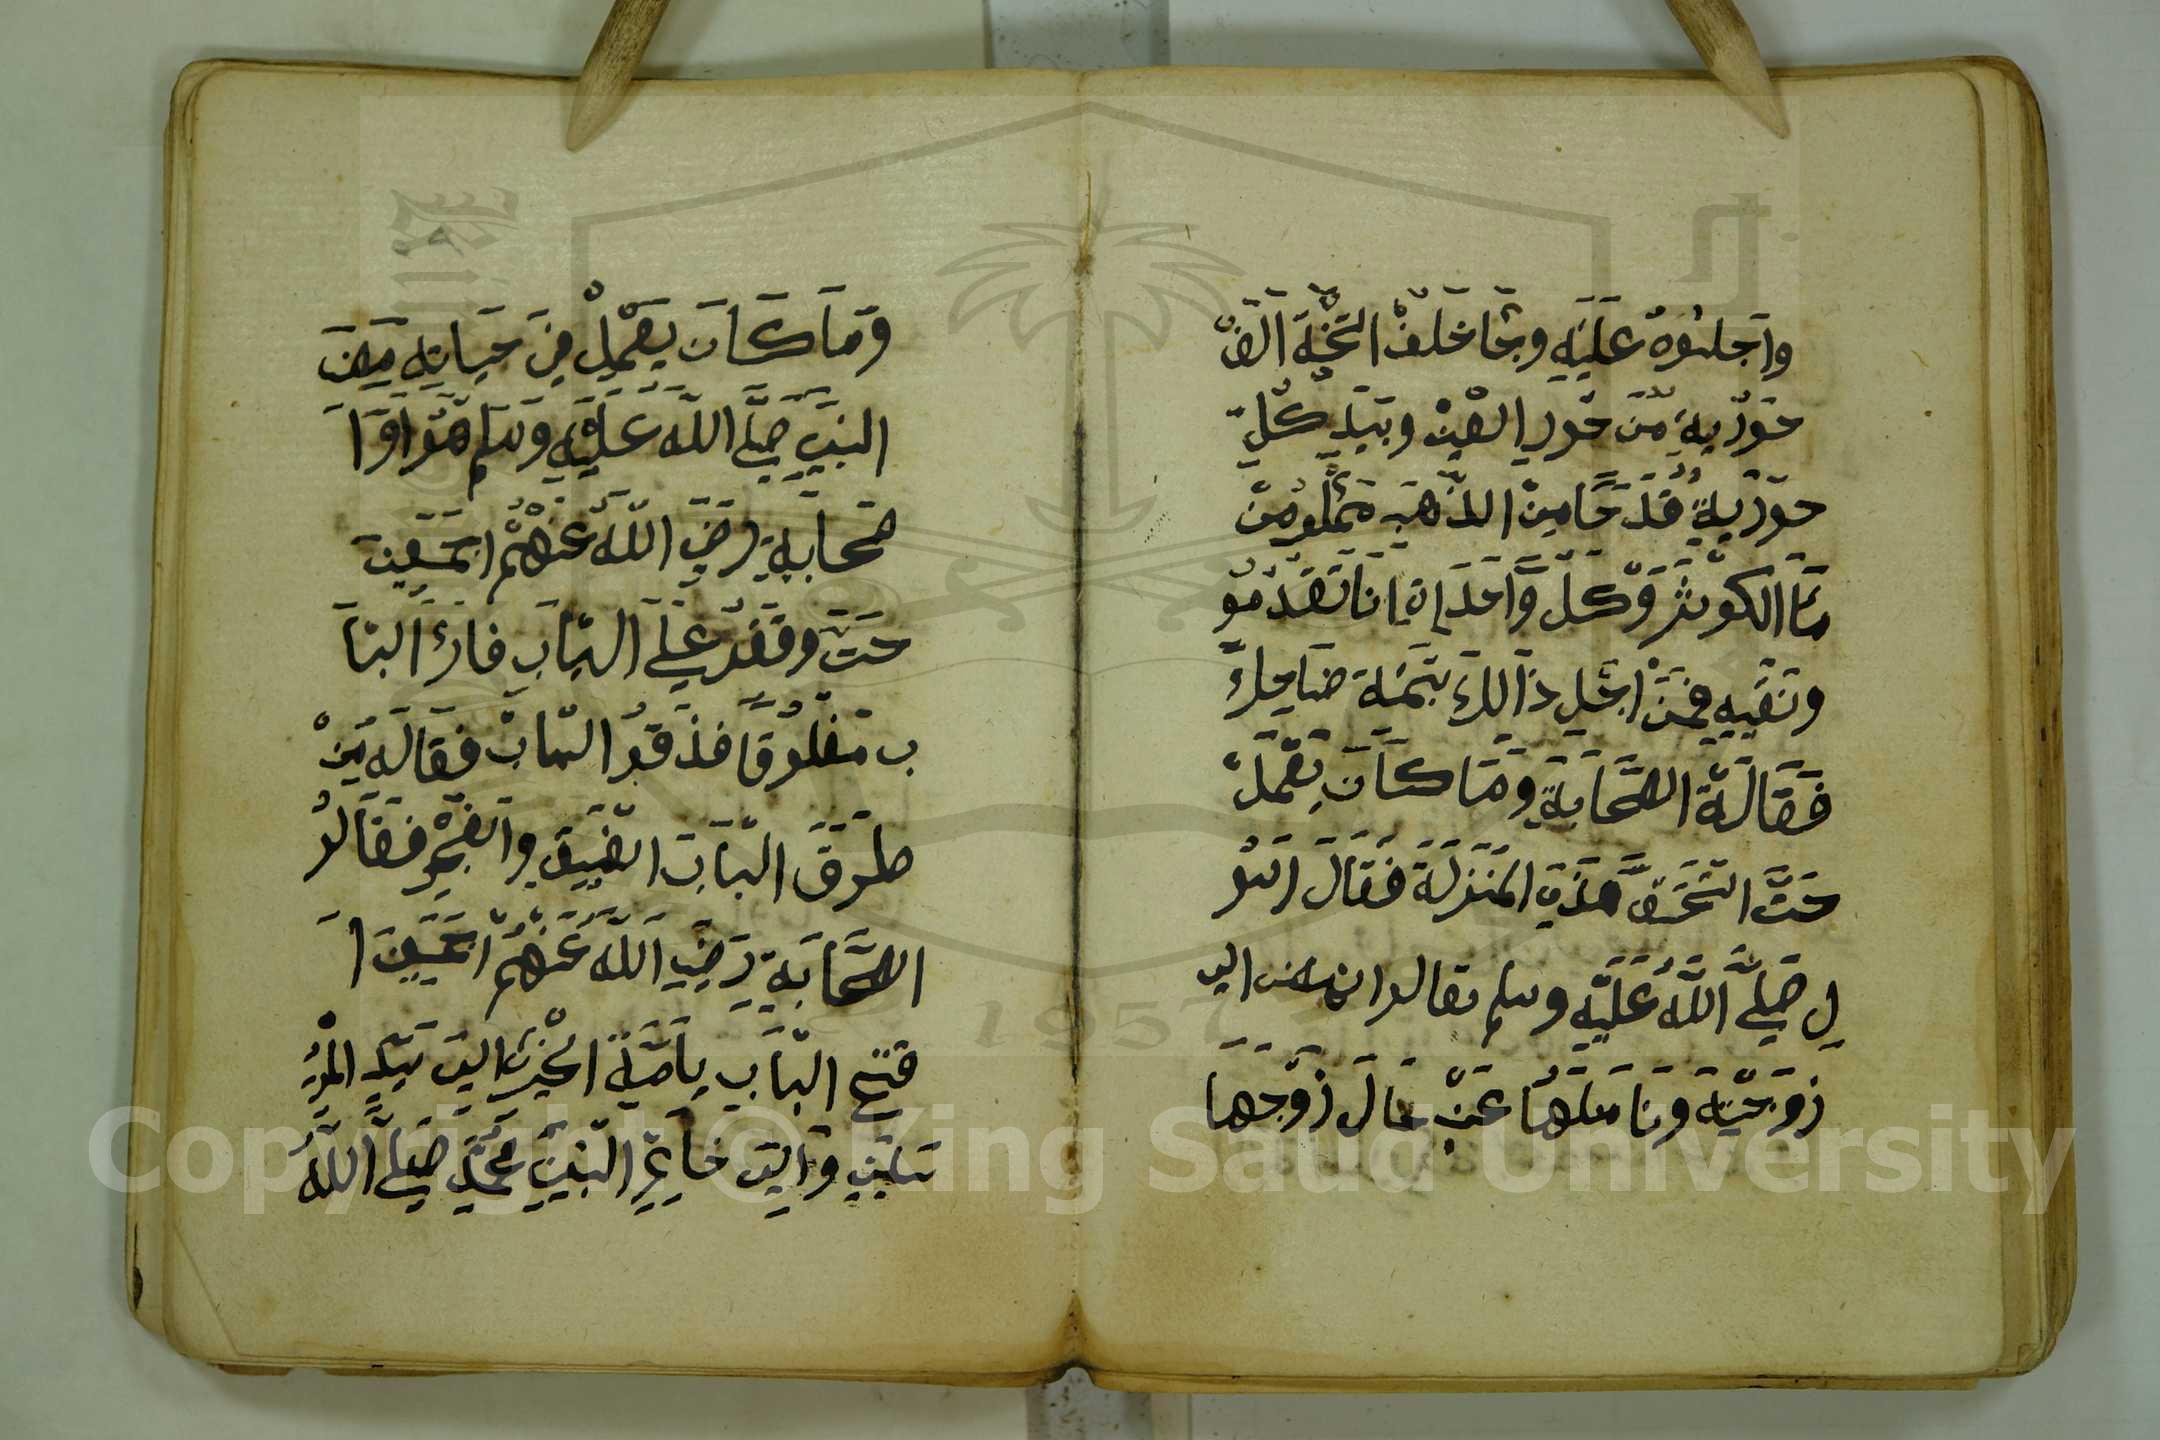 واجلسوه عليه وجا خلف التخة الف
حورية من حور العين وبيد كل
حورية قدحا من الذهب مملو من
ماء الكوثر وكل واحدة انا تقدمو
وتسقيه فمن اجل ذالك تبسمة ضاحك
فقالة الصحابة وما كان يعمل
حتى استحق هذه المنزلة فقال الرسو
ل صلى الله عليه وسلم تعالوا نمضى الى
زوجته ونسالها عن حال زوجها
وما كان يعمل في حياته مضى
النبي صلى الله عليه وسلم هو او ا
صحابه رضي الله عنهم اجمعين
حتى وقفو على الباب فاراء البا
ب مغلوقا فدقو الباب فقاله من
طرق الباب الضيق والفجر فقالو
الصحابة رضي الله عنهم اجمعين ا
فتح الباب يا امة الخير الى سيد المر
سلين والى خاتم النبين محمد صلى الله
Copyright © King Saud University
1957